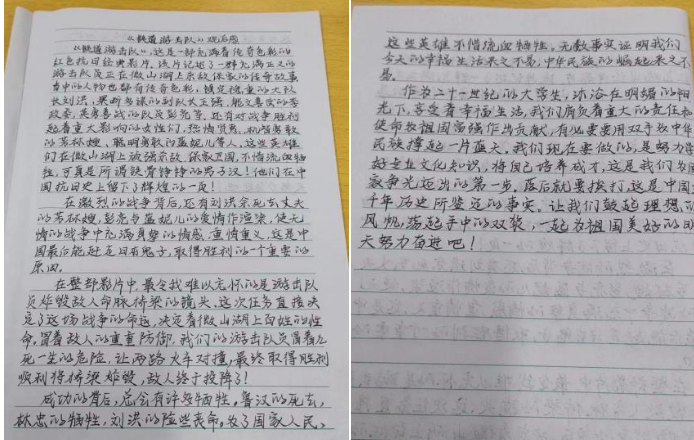 《铁道游击队》观后感
《铁道游击队》，这是一部充满着传奇色彩的
红色抗日经典影片，该片记述了一群充满正义的
游击队员正在微山湖上杀敌保家的传奇故事
当中的人物也都有传奇色彩，镇定稳重的大队
长刘洪，果断多谋的副队长王强，能文善武的李
政委，英勇善战的队员彭亮等，还有对战争胜利
起着重大影响的女性们，热情贤惠、机智勇敢
的芳林嫂，聪明勇敢的蓝妮儿等人，这些英雄
们在微山湖上驰骋杀敌，保家卫国，不惜流血牺
牲，可真是所谓铁骨铮铮的男子汉！他们在中
国抗日史上留下了辉煌的一页！
在激烈的战争背后，还有刘洪亲死去丈夫
的芳林嫂，彭亮与蓝妮儿的爱情作渲染，使无
情的战争中充满真挚的情感，重情重义，这是中
国最后能赶走日本鬼子，取得胜利的一个重要的
原因。
在整部影片中，最令我难以忘怀的是游击队
员炸毁敌人命脉桥梁的镜头，这次任务直接决
定了这场战争的命运，决定着微山湖上百姓的性
命，冒着敌人的重重防御，我们的游击队员冒着九
死一生的危险，让两路火车对撞，最终取得胜利
顺利将桥梁炸毁，敌人终于投降了！
成功的背后，总会有许多牺牲，鲁汉的死去，
林忠的牺牲，刘洪的险些丧命，为了国家人民，
这些英雄不惜流血牺牲，无数事实证明我们
今天的幸福生活来之不易，中华民族的崛起来之不
易。
作为二十一世纪的大学生，沐浴在明媚的阳
光下，享受着幸福生活，我们肩负着重大的责任和
使命为祖国富强作出贡献，有必要要用双手为中华
民族撑起一片蓝天，我们现在要做的，是努力
好专业文化知识，将自己培养成才，这是我们为国
家争光迈出的第一步，落后就要挨打，这是中国
千年历史所鉴定的事实，让我们鼓起理想的
风帆，荡起手中的双桨，一起为祖国美好的明
天努力奋进吧！